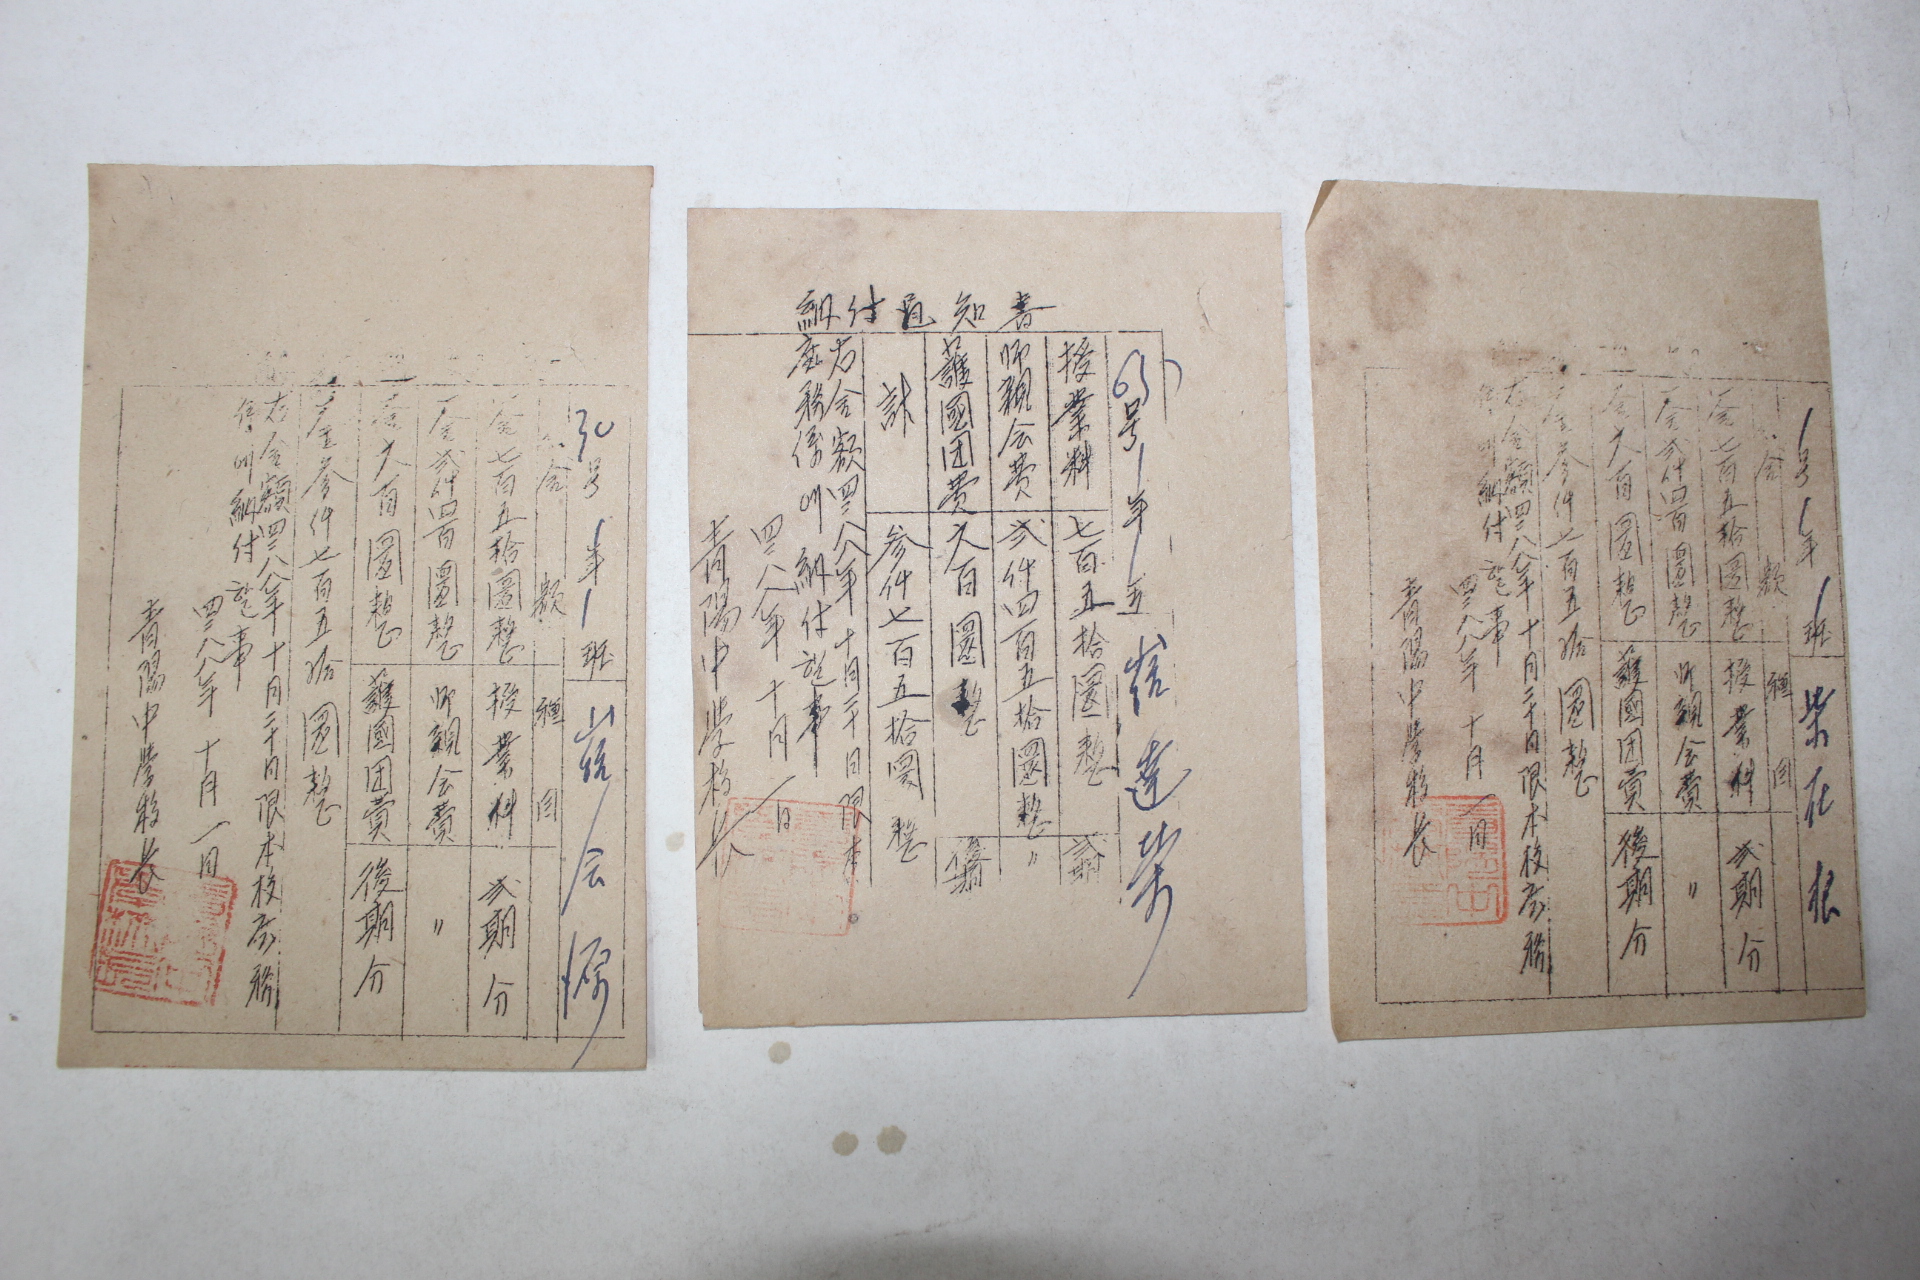 30号 1年 1班 崔会源
金額 種目
金七百五拾圓整 授業料 弐期分
金弐仟四百圓整 師親会費 〃
金六百圓整 護國団費 後期分
金参仟七百五拾圓整
右金額四二八八年十月二十日限本校庶務
係에納付할事
四二八八年十月一日
青陽中學校長
納付通知書
63号 1年 1 崔達榮
授業料 七百五拾圓整 弐期
師親会費 弐仟四百五拾圓整 〃
護國団費 六百圓整 後期
計 参仟七百五拾圓整
右金額四二八八年十月二十日限本
庶務係에納付할事
四二八八年十月一日
青陽中學校長
1号 1年 1班 柴在根
金額 種目
金七百五拾圓整 授業料 弐期分
金弐仟四百圓整 師親会費 〃
金六百圓整 護國団費 後期分
金参仟七百五拾圓整
右金額四二八八年十月二十日限本校庶務
係에納付할事
四二八八年十月一日
青陽中學校長